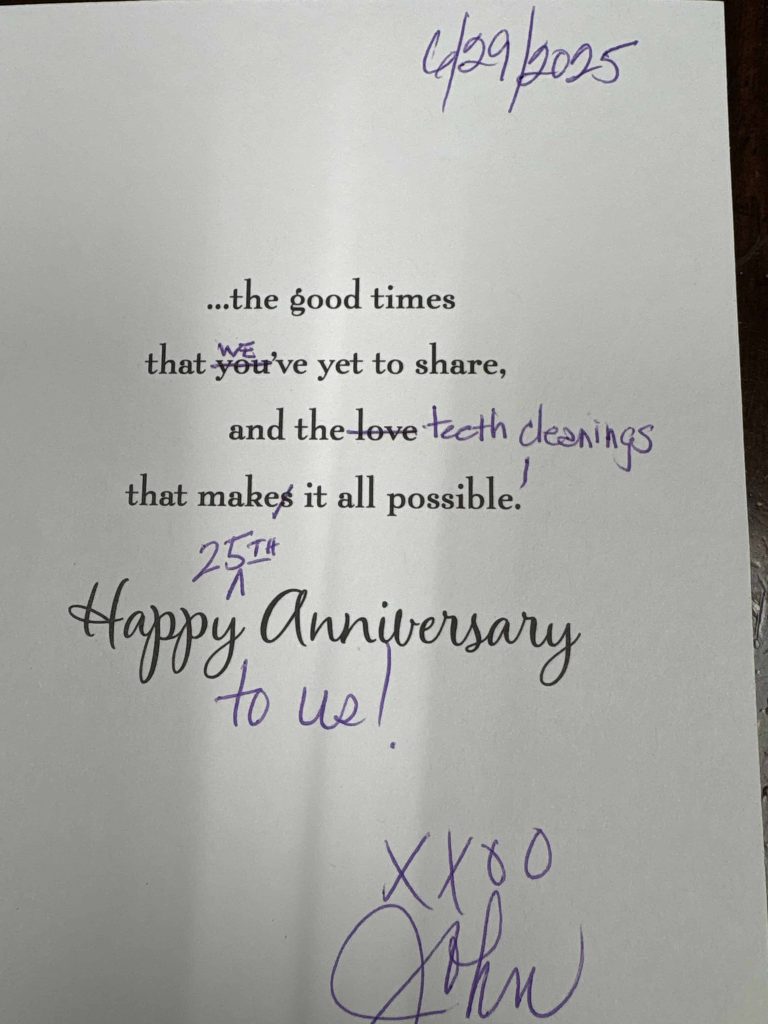 6/29/2025
...the good times
WE
that you've yet to share,
and the love teeth cleanings
that makes it all possible.!
25TH
Happy Anniversary
to us!
XXOO
John